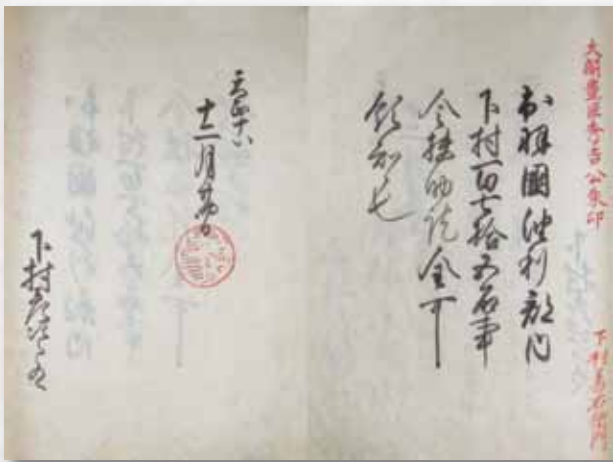 太閤豊臣秀吉公朱印
下村 右衛門
出羽國油利郡内
下村百七拾五石事
令扶助訖全可
領知也
天正十八
十二月廿四日
下村彦次